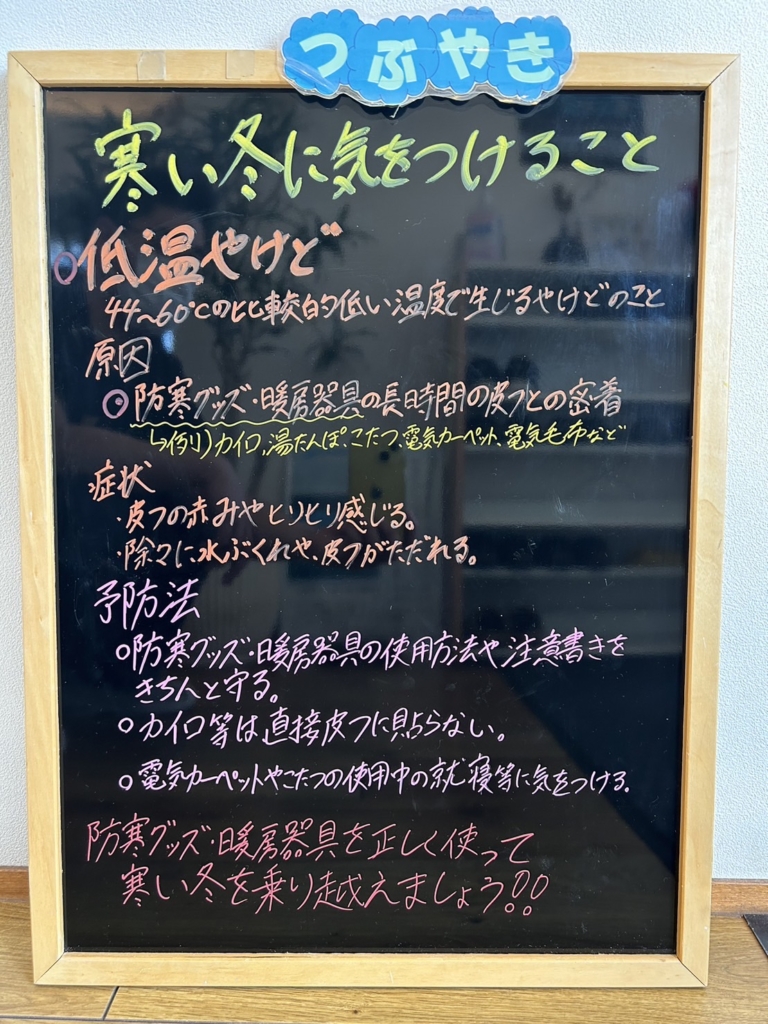 つぶやき
寒い冬に気をつけること
○低温やけど
44~60℃の比較的低い温度で生じるやけどのこと
原因
◎防寒グッズ・暖房器具の長時間の皮フとの密着
↳例)カイロ,湯たんぽ,こたつ,電気カーペット,電気毛布など
症状
・皮フの赤みやヒリヒリ感じる。
・除々に水ぶくれや、皮フがただれる。
予防法
○防寒グッズ・暖房器具の使用方法や注意書きを
きちんと守る。
○カイロ等は直接皮フに貼らない。
○電気カーペットやこたつの使用中の就寝等に気をつける。
防寒グッズ・暖房器具を正しく使って
寒い冬を乗り越えましょう!!